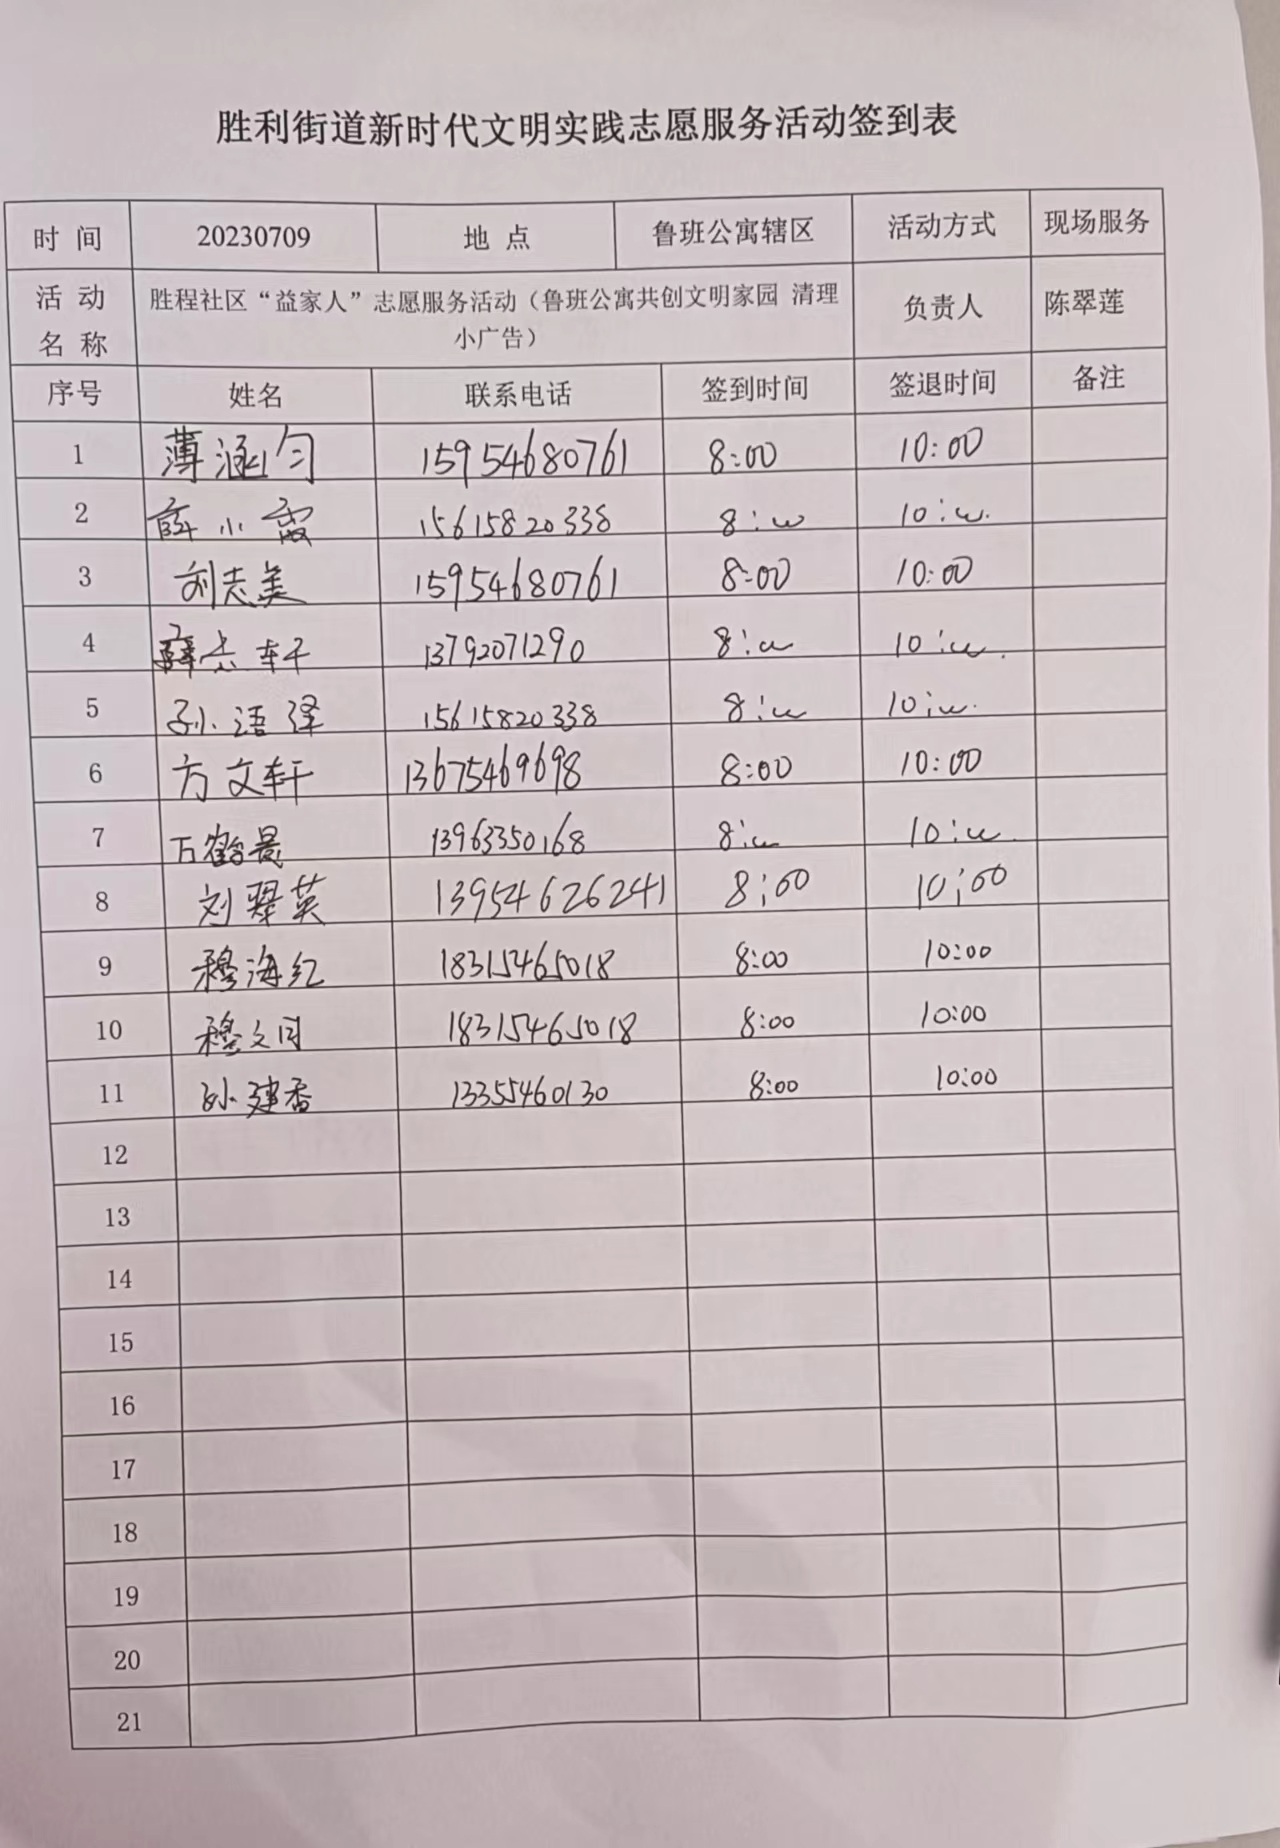 胜利街道新时代文明实践志愿服务活动签到表
时 间 20230709 地 点 鲁班公寓辖区 活动方式 现场服务
活 动 名 称 胜程社区“益家人”志愿服务活动（鲁班公寓共创文明家园 清理
小广告） 负责人 陈翠莲
序号 姓名 联系电话 签到时间 签退时间 备注
1 薄涵匀 15954680761 8:00 10:00
2 薛小霞 15615820338 8:00 10:00.
3 刘志美 15954680761 8:00 10:00
4 薛志轩 13792071290 8:00 10:00.
5 孙语泽 15615820338 8:00 10:00.
6 方文轩 13675469698 8:00 10:00
7 万鹤晨 13963350168 8:00 10:00.
8 刘翠英 13954626241 8:00 10:00
9 穆海红 18315465018 8:00 10:00
10 穆文月 18315465018 8:00 10:00
11 孙建香 13355460130 8:00 10:00
12
13
14
15
16
17
18
19
20
21